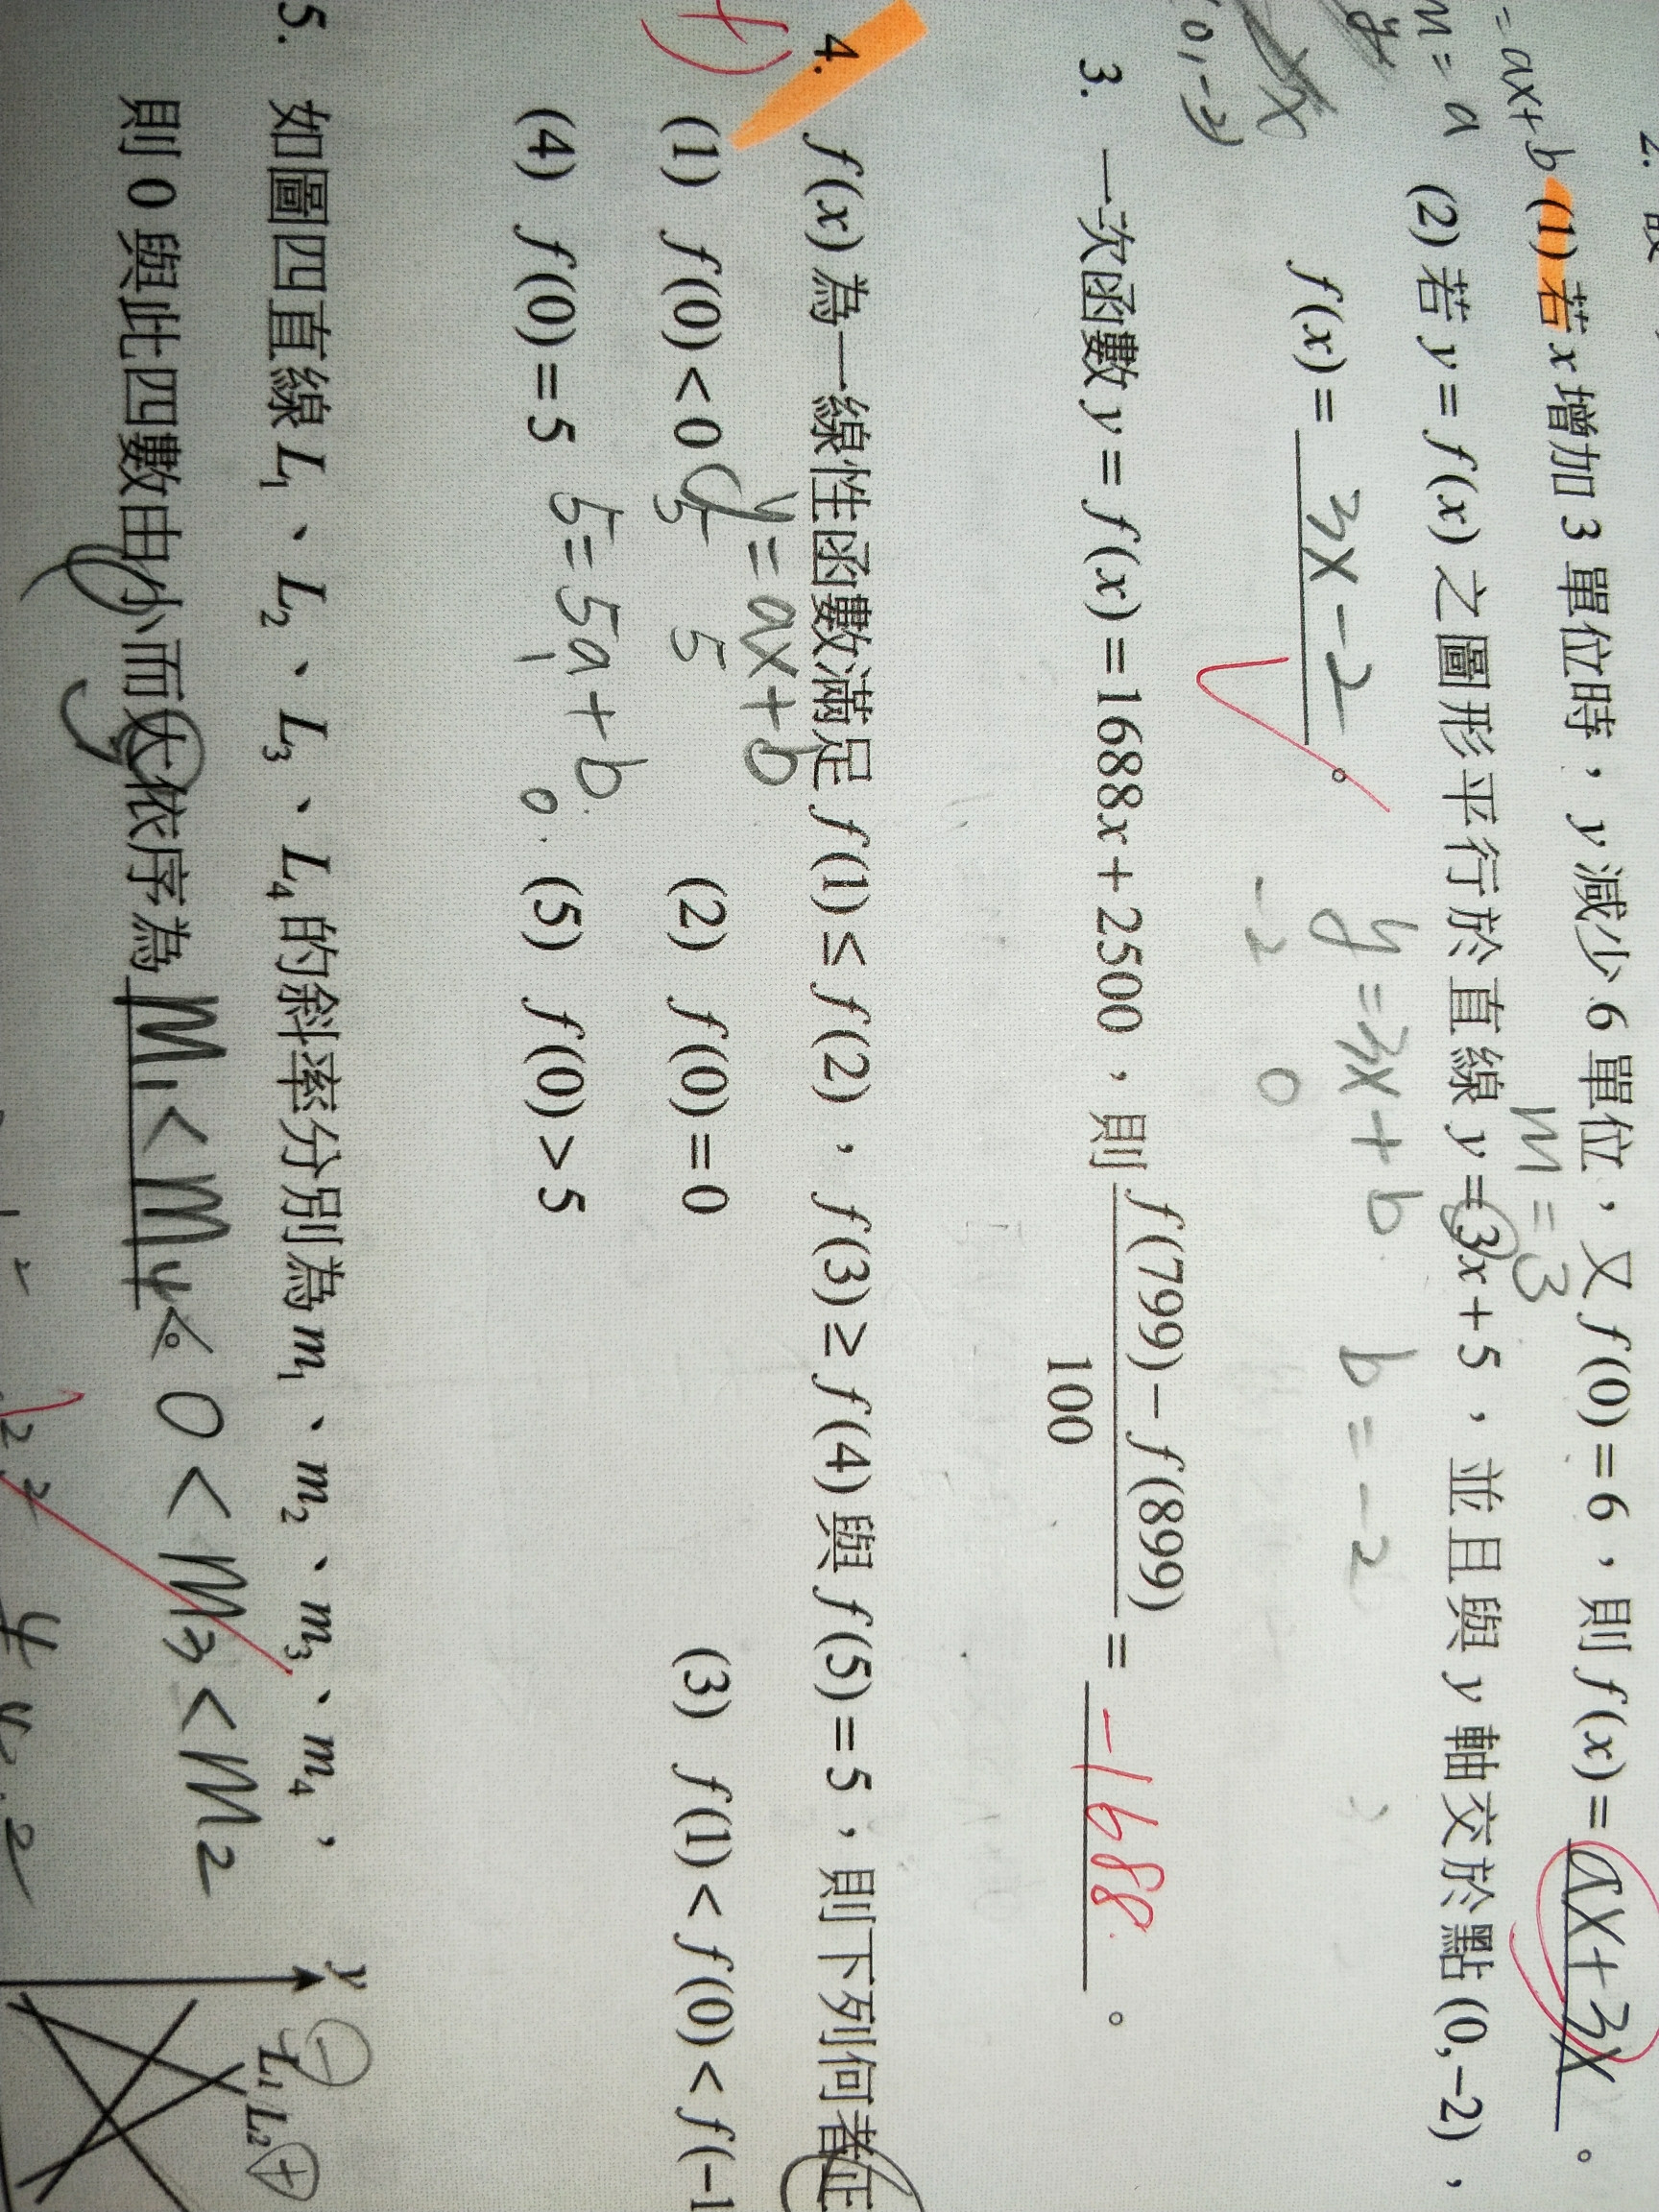 2.
= ax+b (1) 若 x 增加 3 單位時，y 減少 6 單位，又 f(0) = 6，則 f(x) = ax+3x 。
m = a
m = 3
(2) 若 y = f(x) 之圖形平行於直線 y = 3x + 5，並且與 y 軸交於點 (0,−2)，
f(x) = 3x−2 。
y = 3x + b
b = −2
−2 0
3. 一次函數 y = f(x) = 1688x + 2500，則 f(799) − f(899) / 100 = −1688 。
4. f(x) 為一線性函數滿足 f(1) ≤ f(2)，f(3) ≥ f(4) 與 f(5) = 5，則下列何者正
y = ax + b
(1) f(0) < 0 (2) f(0) = 0 (3) f(1) < f(0) < f(−1
5 5
5 = 5a + b
(4) f(0) = 5 (5) f(0) > 5
5. 如圖四直線 L1、L2、L3、L4 的斜率分別為 m1、m2、m3、m4，
則 0 與此四數由小而大依序為 m1 < m4 < 0 < m3 < m2 。
y
− +
L1 L2